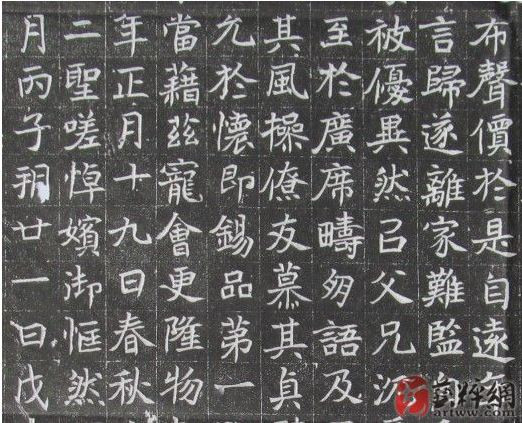 布聲價於是自遠
言歸遂離家難監
被優異然已父兄沉
至於廣席疇語及
其風操僚友慕其貞
允於懷即錫品第一
當藉茲寵會更隆物
年正月十九日春秋
二聖嗟悼嬪御恇然
月丙子朔廿一日戊
藝粹網
artww.com